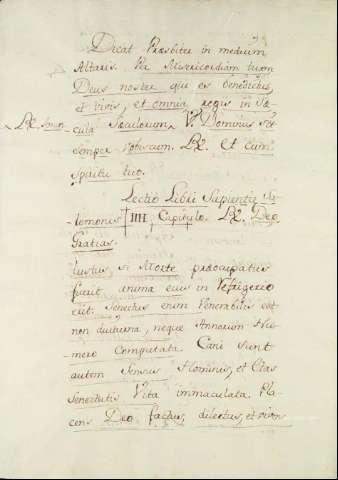 Dicat Presbiter in medium
Altaris. Per Misericordiam tuam
Deus noster qui es benedictus
et vivis, et omnia regis in Sæ-
R. Amen
cula Sæculorum. V. Dominus sit
semper vobiscum. R. et cum
Spiritu tuo.
Lectio Libri Sapientiæ Sa-
lomonis IIII Capitulo. R. Deo
Gratias.
Iustus, si Morte præocupatus
fuerit anima eius in Refrigerio
erit. Senectus enim Venerabilis est
non diuturna, neque Annorum Nu-
mero Computata. Cani sunt
autem Sensus Hominis, et Etas
Senectutis Vita immaculata. Pla-
cens Deo factus, dilectus, et vivens